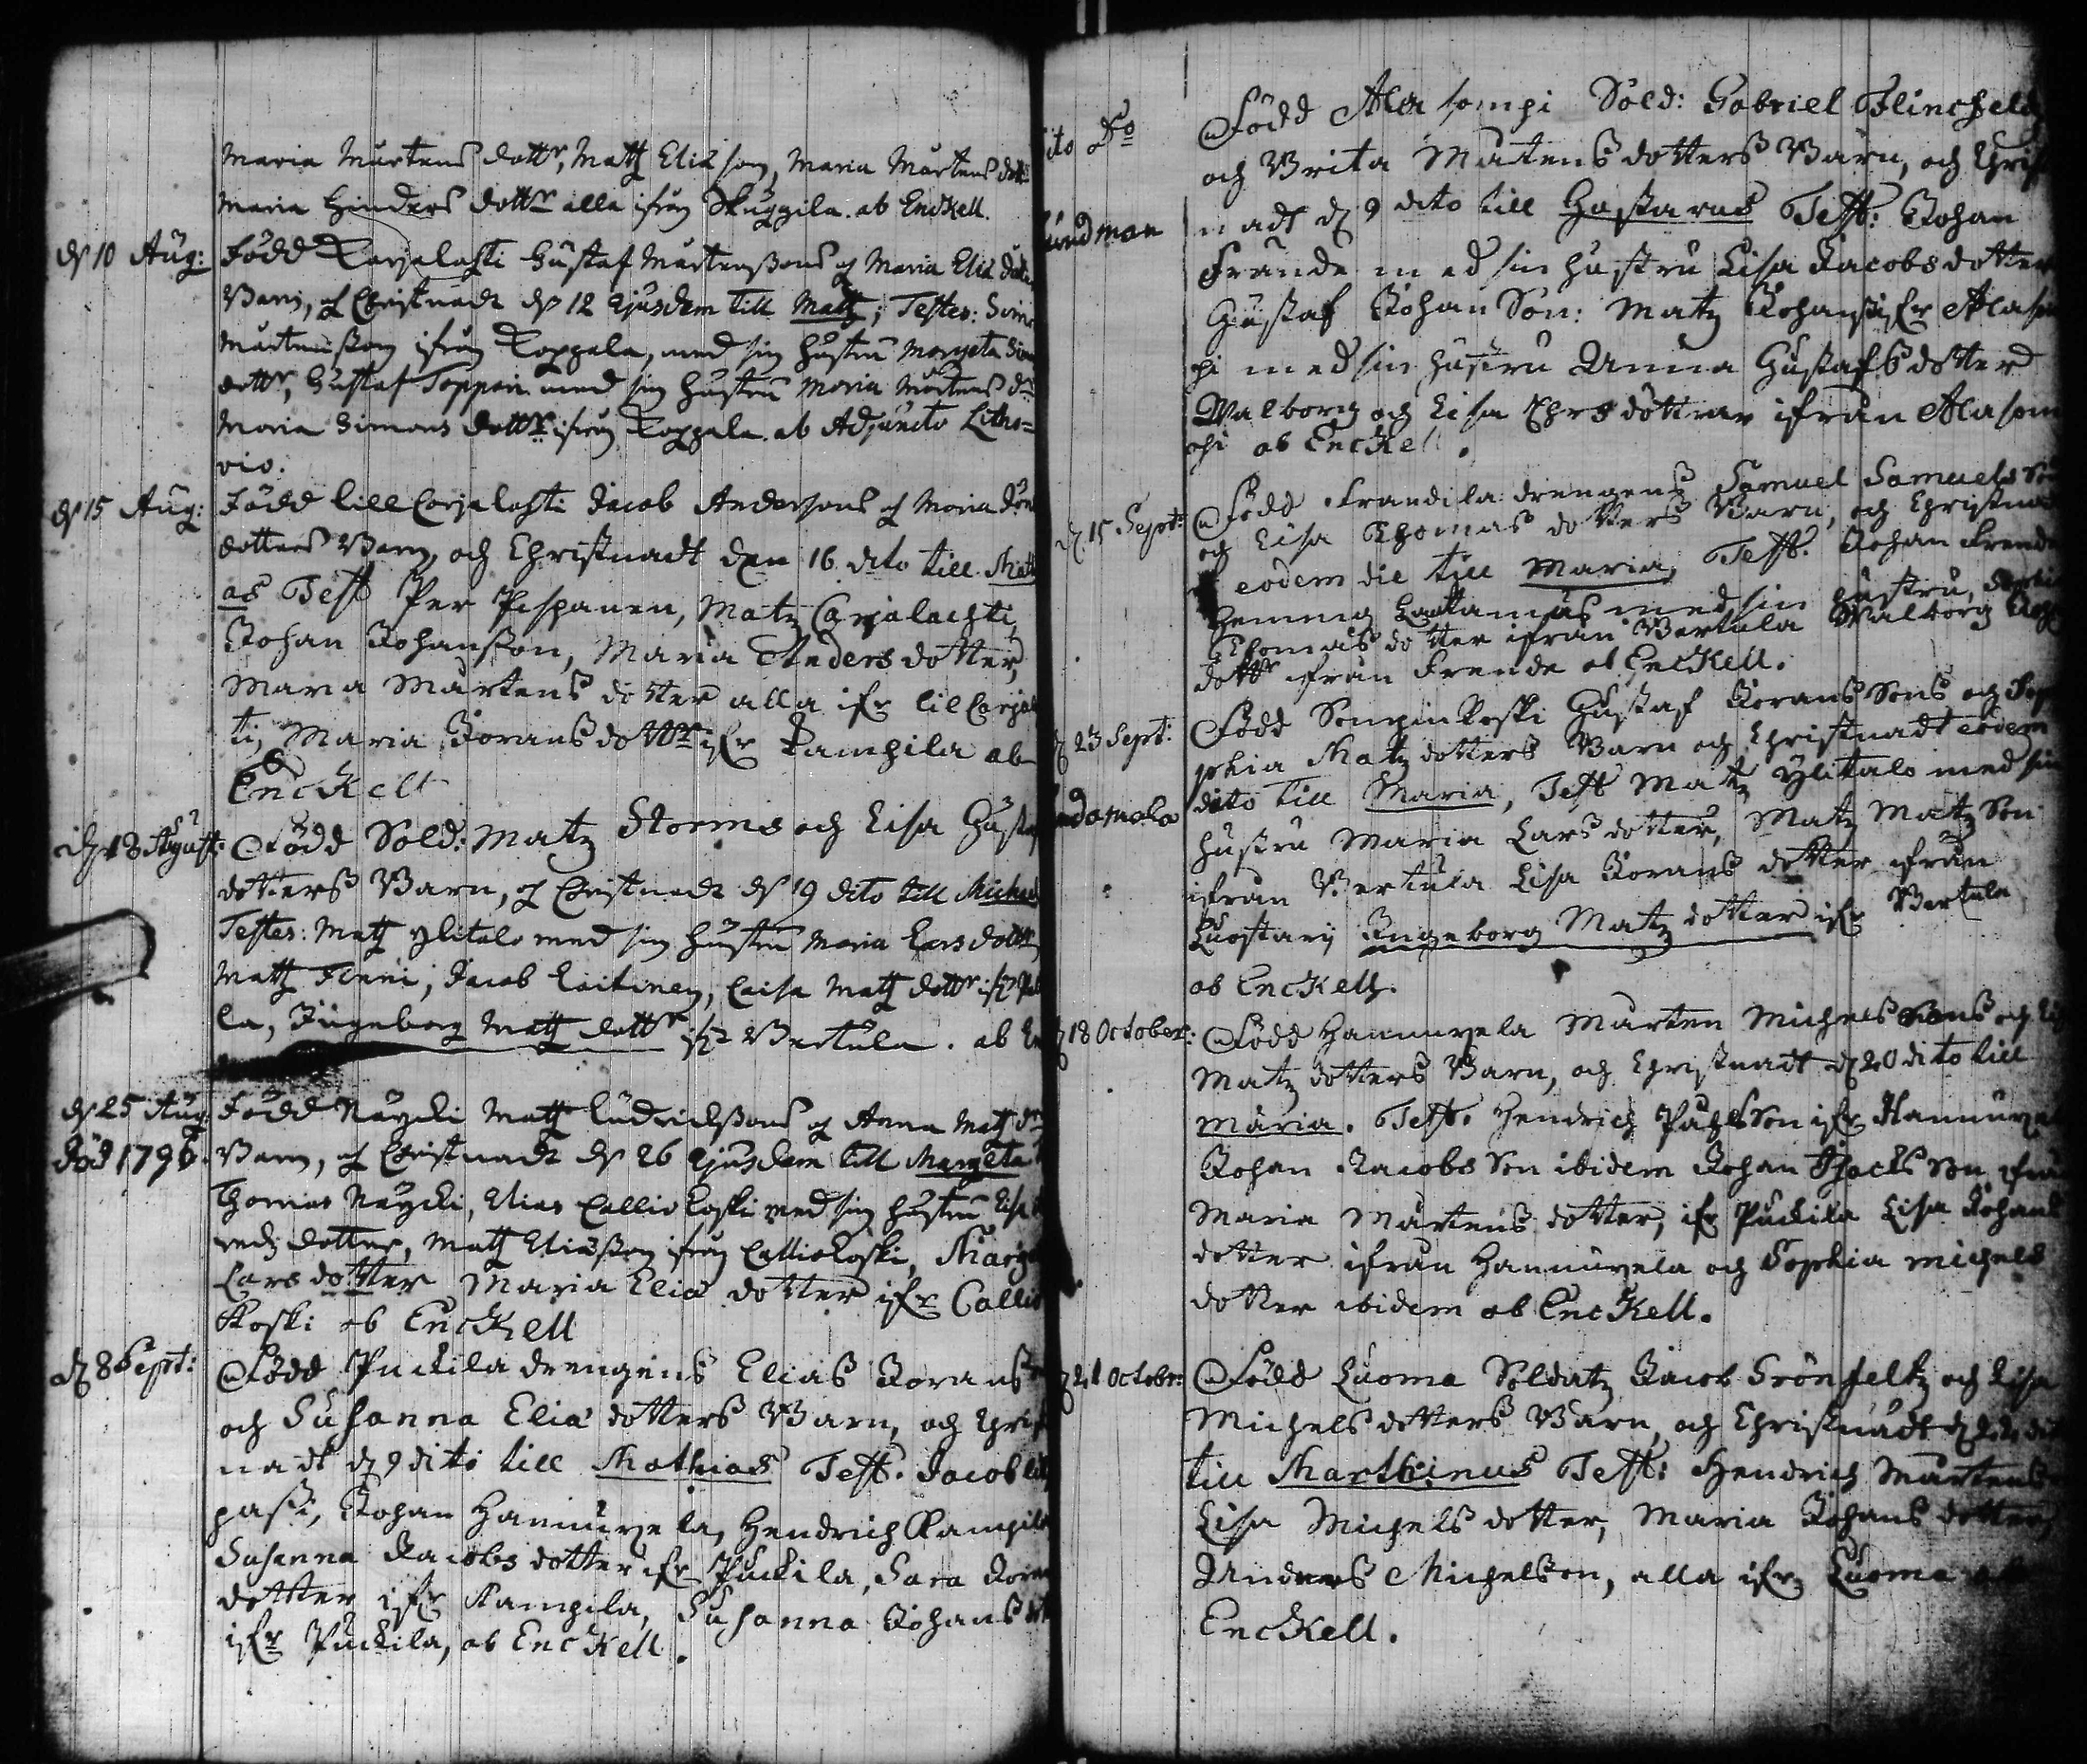 Maria Mårtens dottr, Matz Elia son, Maria Mårtens dotr
Maria Hinders dottr alla ifrån Skuggila. ab Enckell.
d 10 Aug: Född Karjalahti Gustaf Mårtenssons och Maria Eliæ
Barn, och Christnadt d 12 ejusdem till Matz; Testes: Simon
Mårtensson ifrån Koppala, med sin hustru Margeta
dottr, Gustaf Toppari med sin hustru Maria Mårtens dr
Maria Simons dottr ifrån Koppala. ab Adjuncto Litho=
vio.
d 15 Aug: Född lill Carjalahti Jacob Anderssons och Maria
dotters Barn, och Christnadt den 16 dito till Mathi
as Test Per Pispanen, Matz Carjalachti,
Johan Johansson, Maria Anders dotter,
Maria Mårtens dotter alla ifr lil Carjal
ti, Maria Jörans dottr ifr Kampila ab
Enckell
d 18 August: Född Sold: Matz Storms och Lisa Gustaf
dotters Barn, och Christnadt d 19 dito till Michael
Testes: Matz ylitalo med sin hustru Maria Lars dottr
Matz Finni, Jacob Laitinen, Caisa Matz dottr ifr
la, Ingeborg Matz dottr ifr Bertula. ab
d 25 Aug Född Näycki Matz Hindrickssons och Anna Matz dr
död 1790. Barn, och Christnadt d 26 ejusdem till Margeta
Thomas Näycki, Elias Callio koski med sin hustru Lisa
dotter, Matz Eliæsson ifrån Calliokoski, Marg
Lars dotter Maria Eliæ dotter ifr Callio
koski ab Enckell
d 8 Sept: Född Puckila drengens Elias Jörans
och Susanna Eliæ dotters Barn, och Christ
nadt d 9 dito till Mathias Test. Jacob
passi, Johan Hannukela, Hendrich Kampila
Susanna Jacobs dotter ifr Puckila, Sara Jöran
dotter ifr Kampila, Susanna Johans
ifr Puckila, ab Enckell.
ito Do Född Ala sompi Sold: Gabriel Flinchelds
och Brita Mårtens dotters Barn, och Christ
undman nadt d 9 dito till Gustavus Test: Johan
Frände med sin hustru Lisa Jacobs dotter
Gustaf Johan Son: Matz Johansson ifr Alasom
pi med sin hustru Anna Gustafs dotter
Walborg och Lisa Ehrs döttrar ifrån Alasom
pi ab Enckell.
d 15 Sept: Född Frandila drengens Samuel Samuels Son
och Lisa Thomas dotters Barn, och Christnad
eodem die till Maria, Test. Johan Frende
Henning Lautamus med sin hustru, Sophia
Thomas dotter ifrån Bertula Walborg
dottr ifrån Frende ab Enckell.
d 23 Sept: Född Sompinkoski Gustaf Jörans Sons och So
phia Matz dotters Barn och Christnadt eodem
dito till Maria, Test Matz Ylitalo med sin
hustru Maria Lars dotter, Matz Matz Son
ifrån Bertula Lisa Jörans dotter ifrån
Luostarij Ingeborg Matz dotter ifr Bertula
ab Enckell.
d 18 October: Född Hannukela Mårten Michels sons och Lis
Matz dotters Barn, och Christnadt d 20 dito till
Maria. Test. Hendrich Påhls Son ifr Hannukel
Johan Jacobs Son ibidem Johan Son ifrån
Maria Mårtens dotter, ifr Puckila Lisa Johans
dotter ifrån Hannukela och Sophia Michels
dotter ibidem ab Enckell.
d 21 Octobr: Född Luoma Soldatz Jacob Grönfeltz och Lisa
Michels dotters Barn, och Christnadt d 22 dit
till Marthinus Test: Hendrich Mårtens
Lisa Michels dotter, Maria Johans dotter,
Anders Michelson, alla ifr Luoma ab
Enckell.